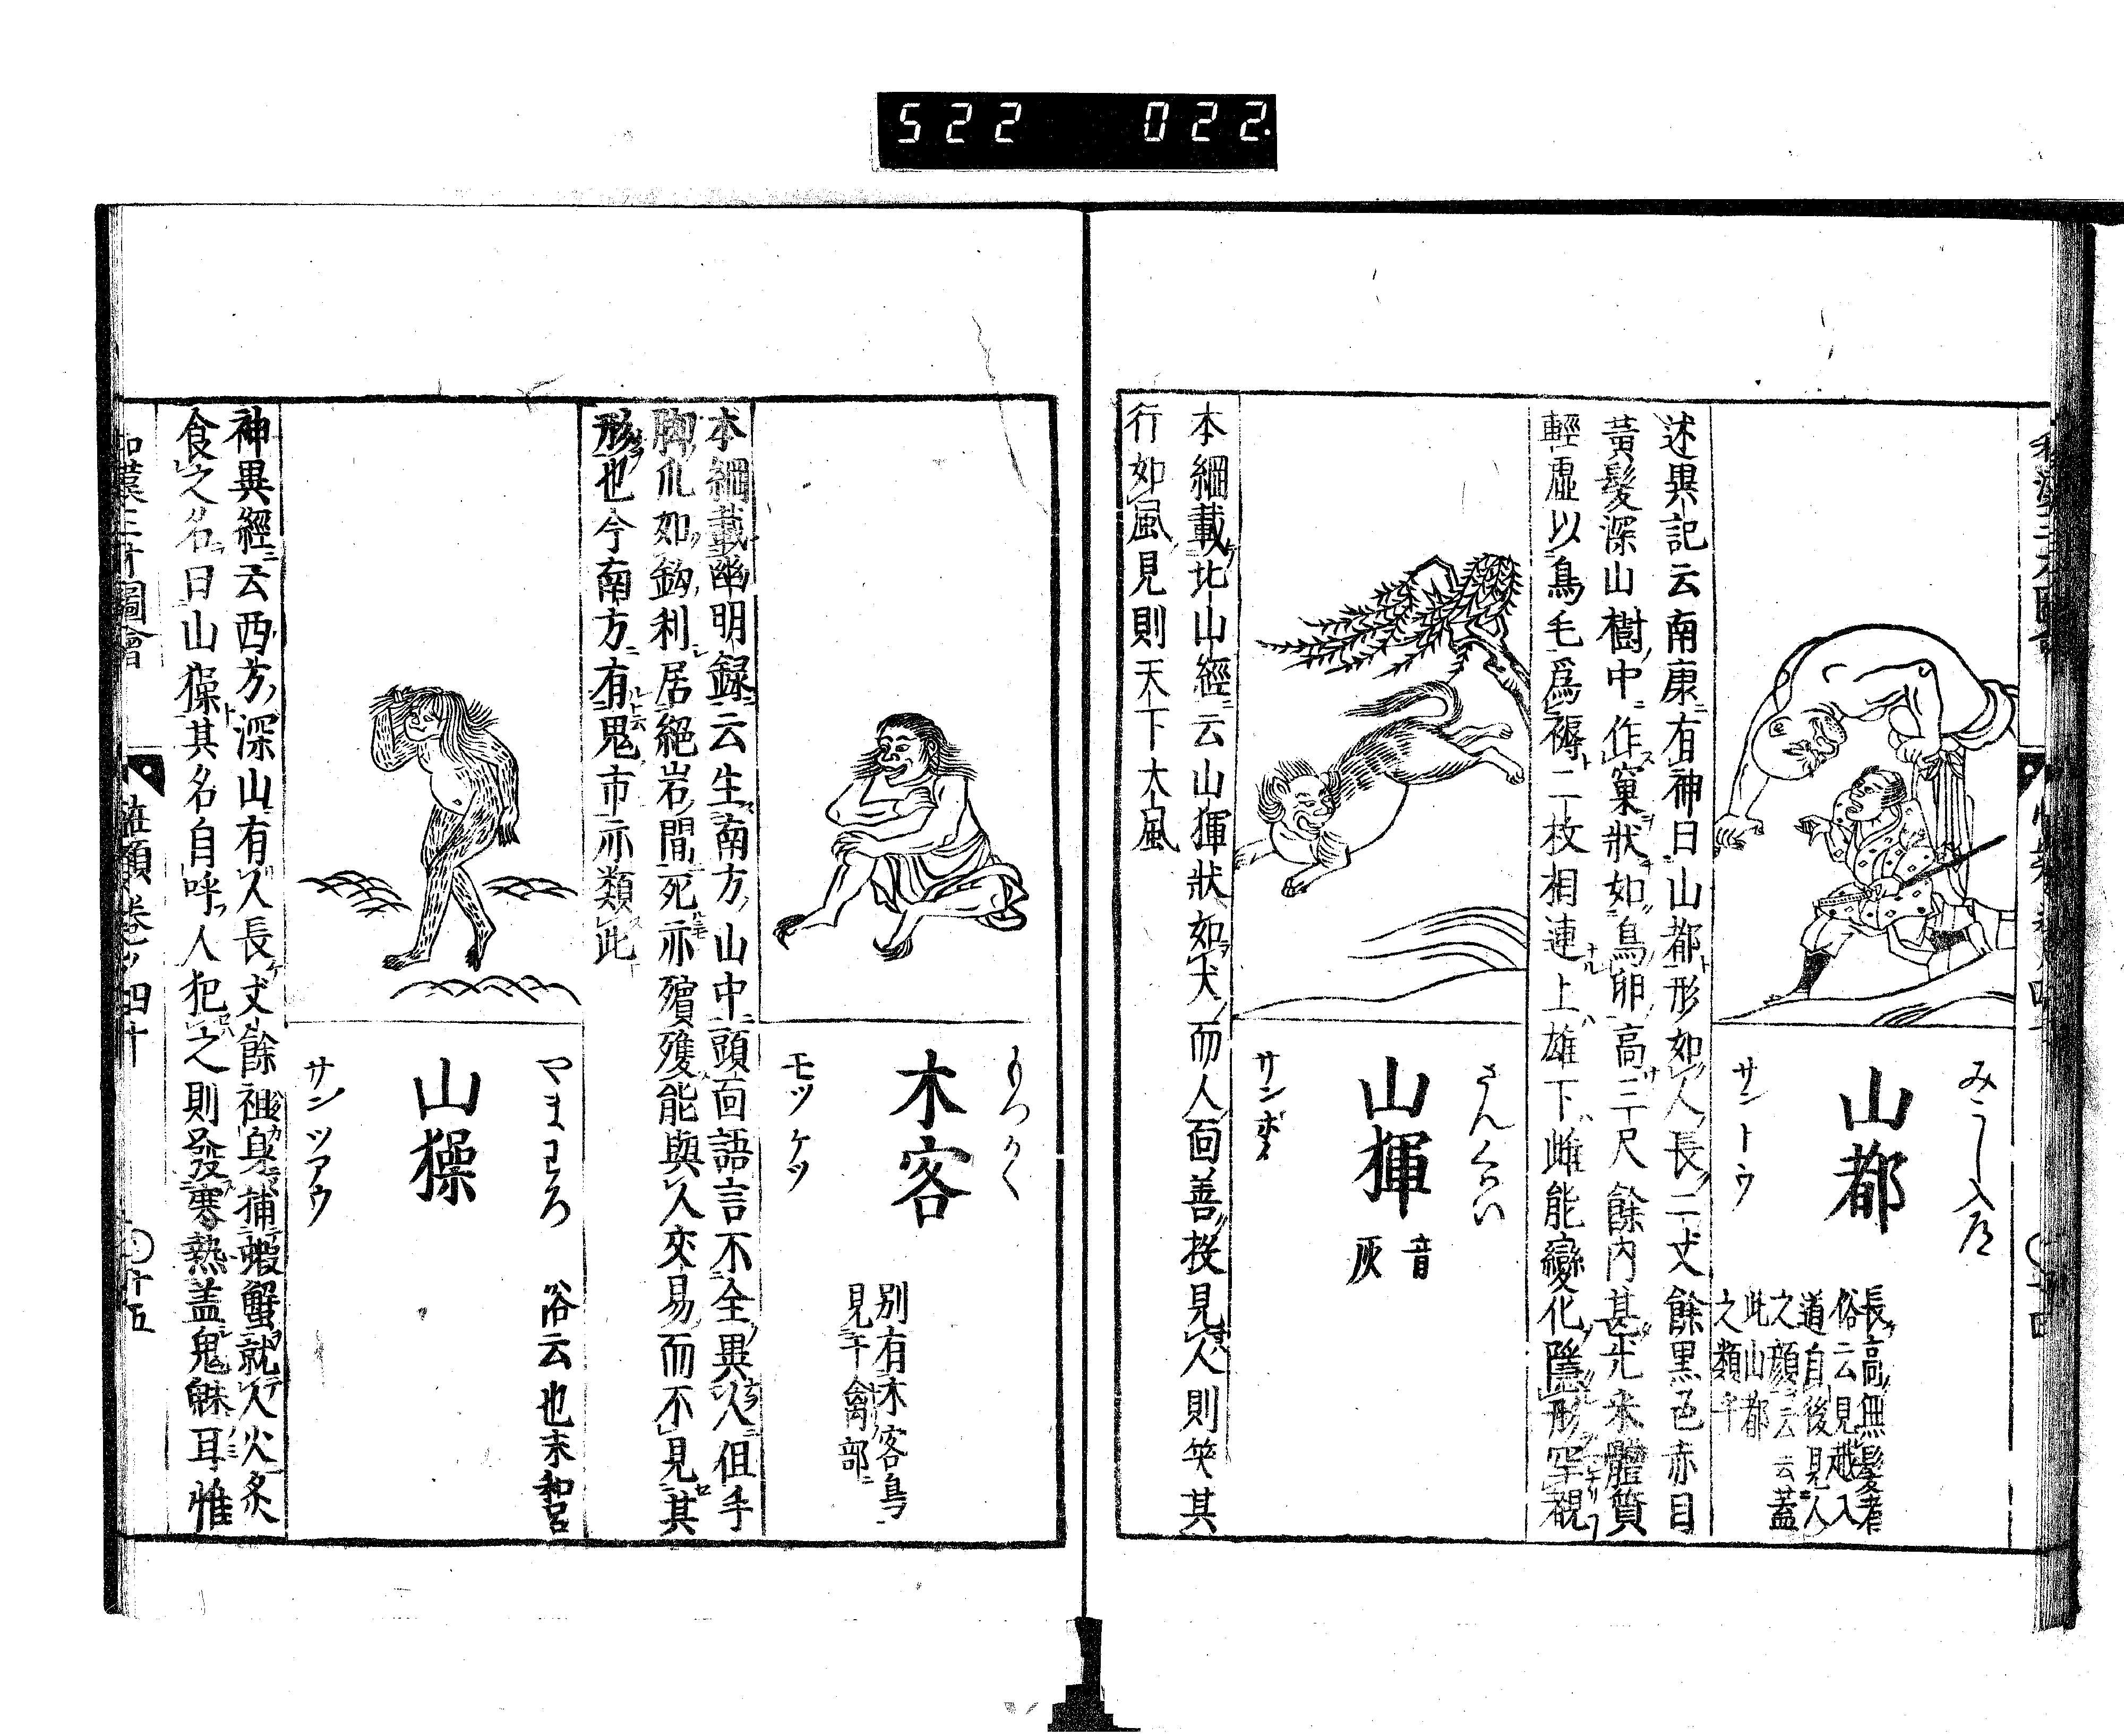 522 022.
みこし入道
山都
サントウ
長高無髪者
俗云見越入
道自後見人
之顔云云蓋
此山都
之類乎
述異記云南康有神曰山都形如人長二丈餘黒色赤目
黃髮深山樹中作窠狀如鳥卵高三尺餘内甚光采體質
輕虛以鳥毛爲褥二枚相連上雄下雌能變化隱形罕覩
さんくはい
山㺑
音
灰
サンホイ
本綱載北山經云山㺑狀如犬而人面善投見人則笑其
行如風見則天下大風
もつかく
木客
モツケツ
別有木客鳥
見于禽部
本綱載幽明録云生南方山中頭面語言不全異人但手
脚爪如鈎利居絕岩間死亦殯殮能與人交易而不見其
形也今南方有鬼市亦類此
やまわろ
山𤢖
俗云也末和呂
サンツアウ
神異經云西方深山有人長丈餘袒身捕蝦蟹就人火炙
食之名曰山𤢖其名自呼人犯之則發寒熱盖鬼魅耳惟
和漢三才圖會
雜類 卷ノ四十
○十五